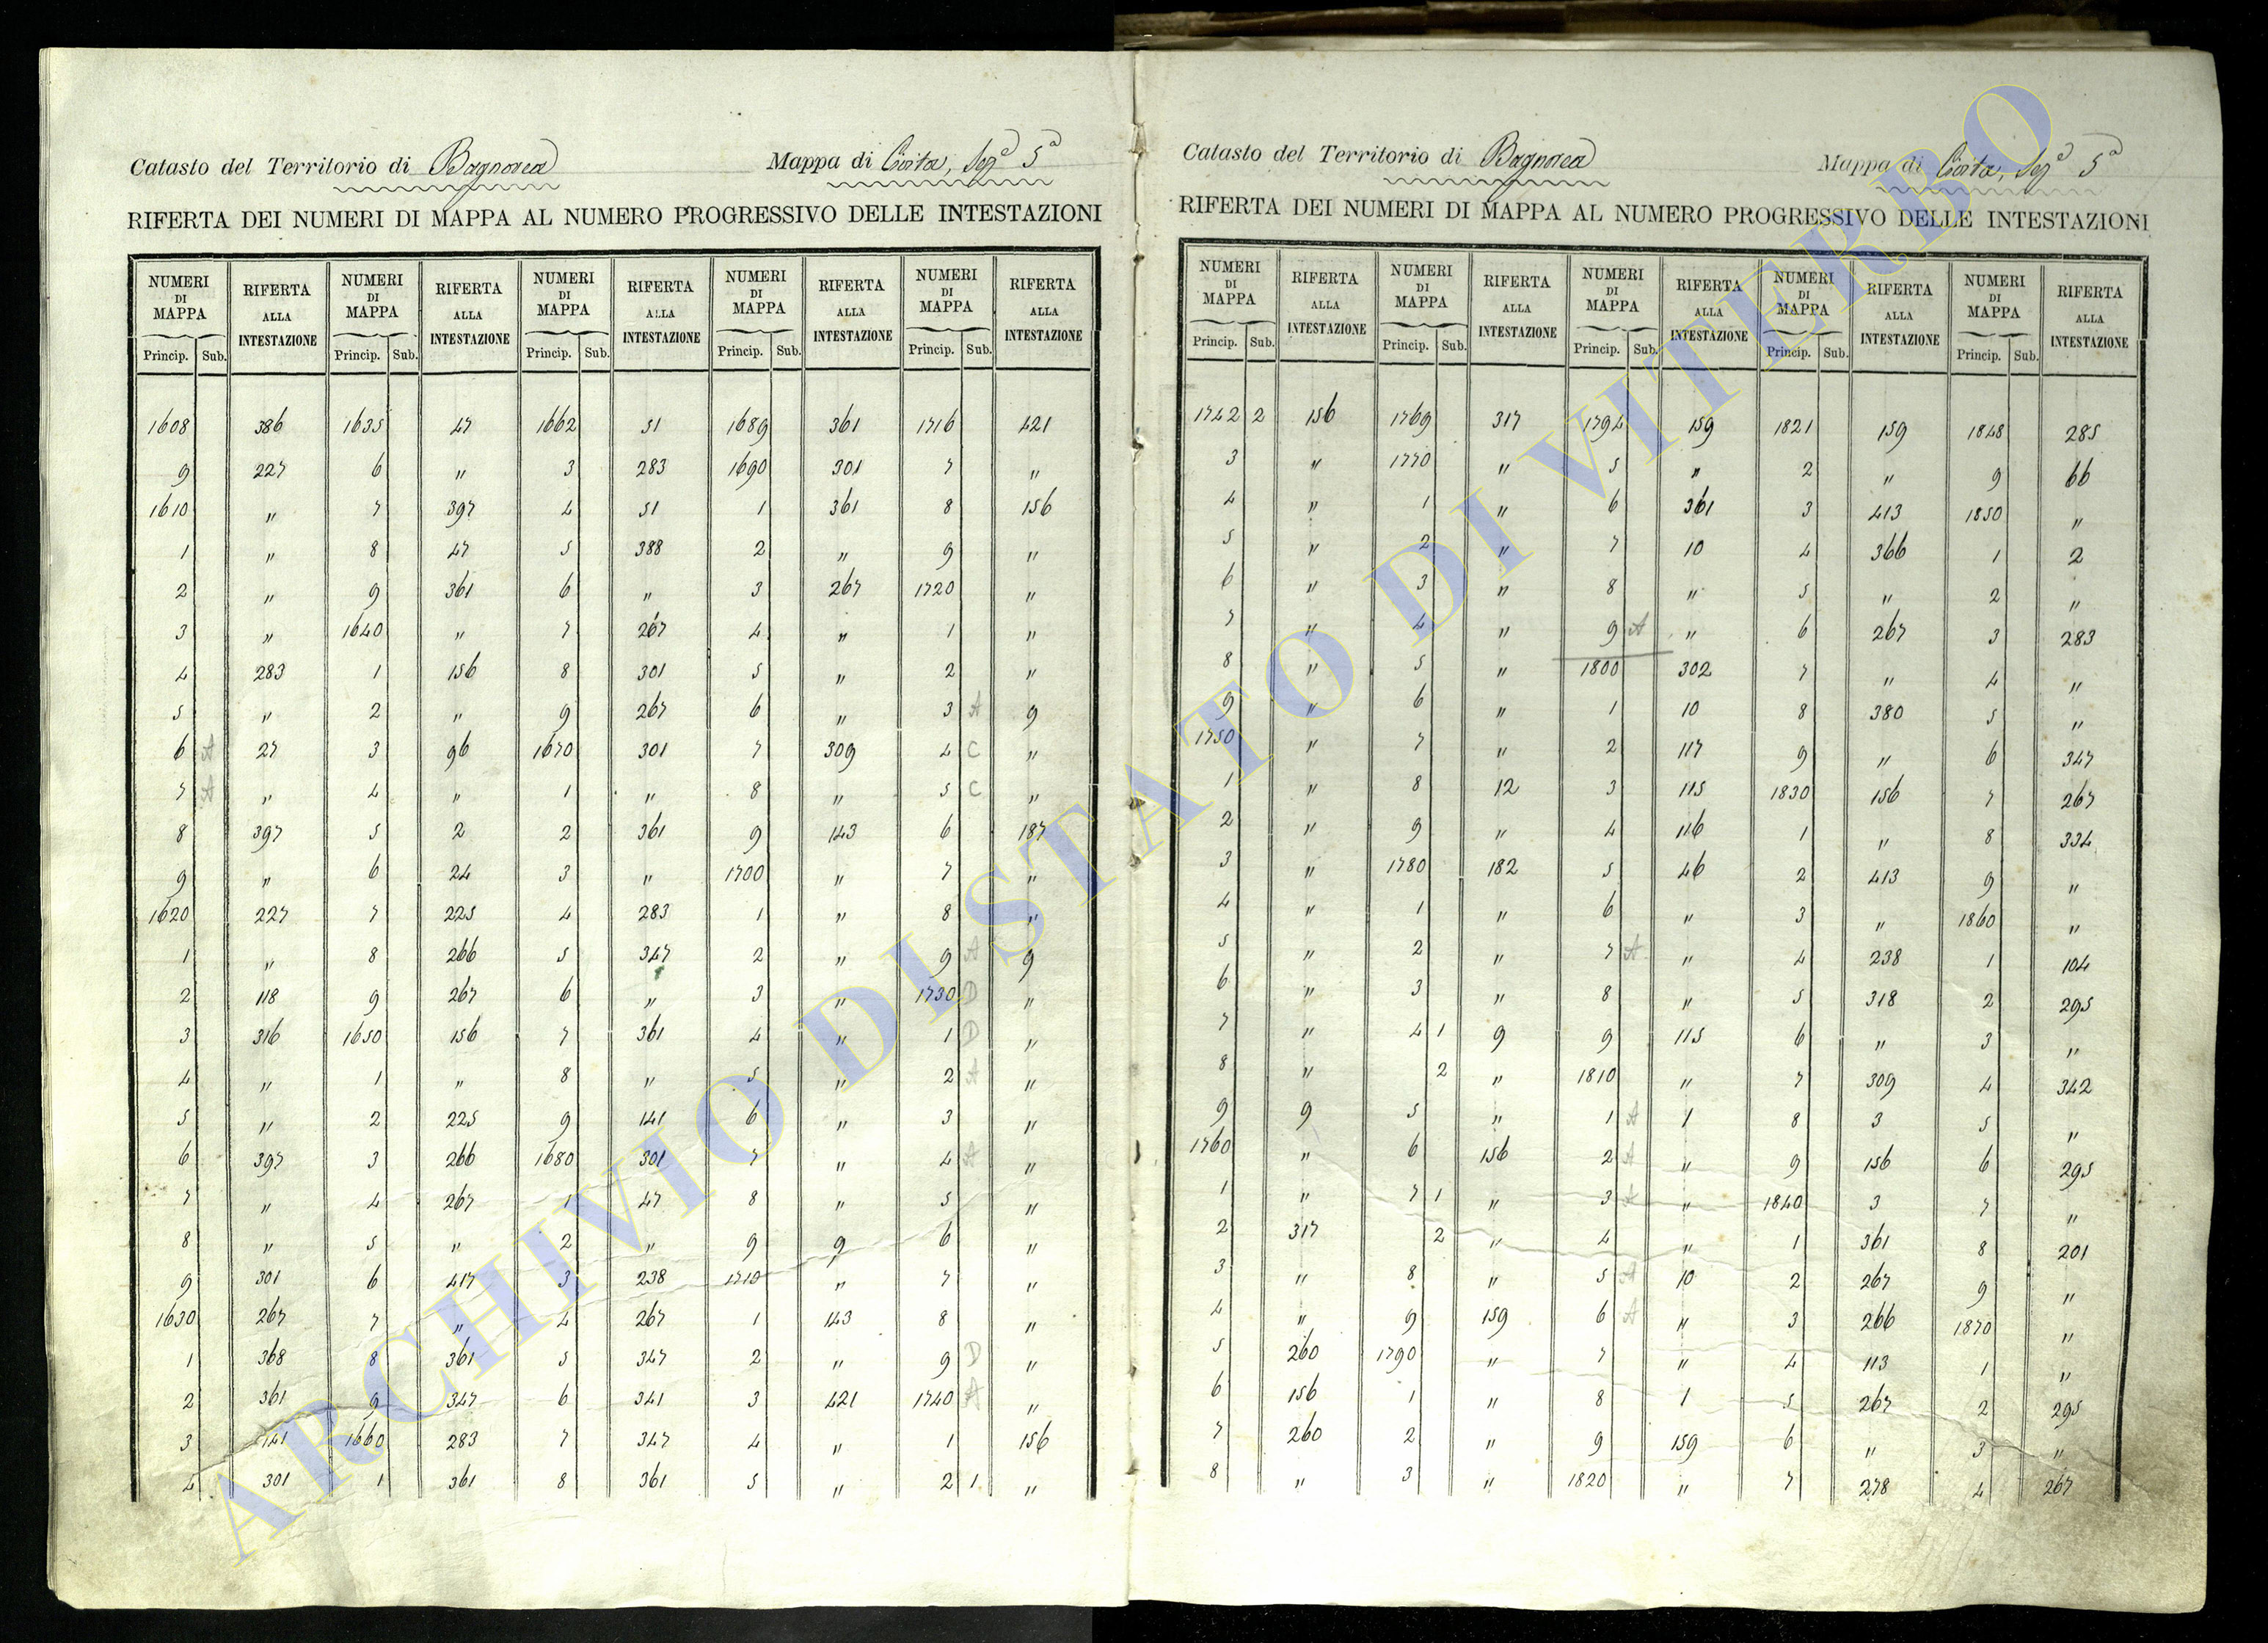 Catasto del Territorio di Bagnorea Mappa di Civita, Sez.ª 5ª
RIFERTA DEI NUMERI DI MAPPA AL NUMERO PROGRESSIVO DELLE INTESTAZIONI
NUMERI DI MAPPA RIFERTA ALLA INTESTAZIONE NUMERI DI MAPPA RIFERTA ALLA INTESTAZIONE NUMERI DI MAPPA RIFERTA ALLA INTESTAZIONE NUMERI DI MAPPA RIFERTA ALLA INTESTAZIONE NUMERI DI MAPPA RIFERTA ALLA INTESTAZIONE
Princip. Sub. Princip. Sub. Princip. Sub. Princip. Sub. Princip. Sub.
1608 386 1635 47 1662 51 1689 361 1716 421
9 227 6 " 3 283 1690 301 7 "
1610 " 7 397 4 51 1 361 8 156
1 " 8 47 5 388 2 " 9 "
2 " 9 361 6 " 3 267 1720 "
3 " 1640 " 7 267 4 " 1 "
4 283 1 156 8 301 5 " 2 "
5 " 2 " 9 267 6 " 3 A 9
6 A 27 3 96 1670 301 7 309 4 C "
7 A " 4 " 1 " 8 " 5 C "
8 397 5 2 2 361 9 143 6 187
9 " 6 24 3 " 1700 " 7 "
1620 227 7 225 4 283 1 " 8 "
1 " 8 266 5 347 2 " 9 A 9
2 118 9 267 6 " 3 " 1730 D "
3 316 1650 156 7 361 4 " 1 D "
4 " 1 " 8 " 5 " 2 A "
5 " 2 225 9 141 6 " 3 "
6 397 3 266 1680 301 7 " 4 A "
7 " 4 267 1 47 8 " 5 "
8 " 5 " 2 " 9 9 6 "
9 301 6 417 3 238 1710 " 7 "
1630 267 7 " 4 267 1 143 8 "
1 368 8 361 5 347 2 " 9 D "
2 361 9 347 6 341 3 421 1740 A "
3 141 1660 283 7 347 4 " 1 156
4 301 1 361 8 361 5 " 2 1 "
Catasto del Territorio di Bagnorea Mappa di Civita, Sez.ª 5ª
RIFERTA DEI NUMERI DI MAPPA AL NUMERO PROGRESSIVO DELLE INTESTAZIONI
NUMERI DI MAPPA RIFERTA ALLA INTESTAZIONE NUMERI DI MAPPA RIFERTA ALLA INTESTAZIONE NUMERI DI MAPPA RIFERTA ALLA INTESTAZIONE NUMERI DI MAPPA RIFERTA ALLA INTESTAZIONE NUMERI DI MAPPA RIFERTA ALLA INTESTAZIONE
Princip. Sub. Princip. Sub. Princip. Sub. Princip. Sub. Princip. Sub.
1742 2 156 1769 317 1794 159 1821 159 1848 285
3 " 1770 " 5 " 2 " 9 66
4 " 1 " 6 361 3 413 1850 "
5 " 2 " 7 10 4 366 1 2
6 " 3 " 8 " 5 " 2 "
7 " 4 " 9 A " 6 267 3 283
8 " 5 " 1800 302 7 " 4 "
9 " 6 " 1 10 8 380 5 "
1750 " 7 " 2 117 9 " 6 347
1 " 8 12 3 115 1830 156 7 267
2 " 9 " 4 116 1 " 8 334
3 " 1780 182 5 46 2 413 9 "
4 " 1 " 6 " 3 " 1860 "
5 " 2 " 7 A " 4 238 1 104
6 " 3 " 8 " 5 318 2 295
7 " 4 1 9 9 115 6 " 3 "
8 " 2 " 1810 " 7 309 4 342
9 9 5 " 1 A 1 8 3 5 "
1760 " 6 156 2 A " 9 156 6 295
1 " 7 1 " 3 A " 1840 3 7 "
2 317 2 " 4 " 1 361 8 201
3 " 8 " 5 A 10 2 267 9 "
4 " 9 159 6 A " 3 266 1870 "
5 260 1790 " 7 " 4 113 1 "
6 156 1 " 8 1 5 267 2 295
7 260 2 " 9 159 6 " 3 "
8 " 3 " 1820 " 7 278 4 267
ARCHIVIO DI STATO DI VITERBO